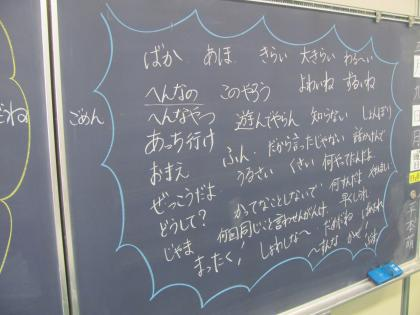 ばか あほ きらい 大きらい わる〜い
へんなの このやろう よわいね ずるいね
へんなやつ 遊んでやらん 知らない しょんぼり
あっち行け ふん だから言ったじゃない
おまえ うるさい くさい 何やってんだよ
ぜっこうだよ かってなことしないで 何すんだよ
どうして? 何回同じこと言わせんがんは 早くしろ
じゃま しょわしな〜 だめだね
まったく!
ごめん